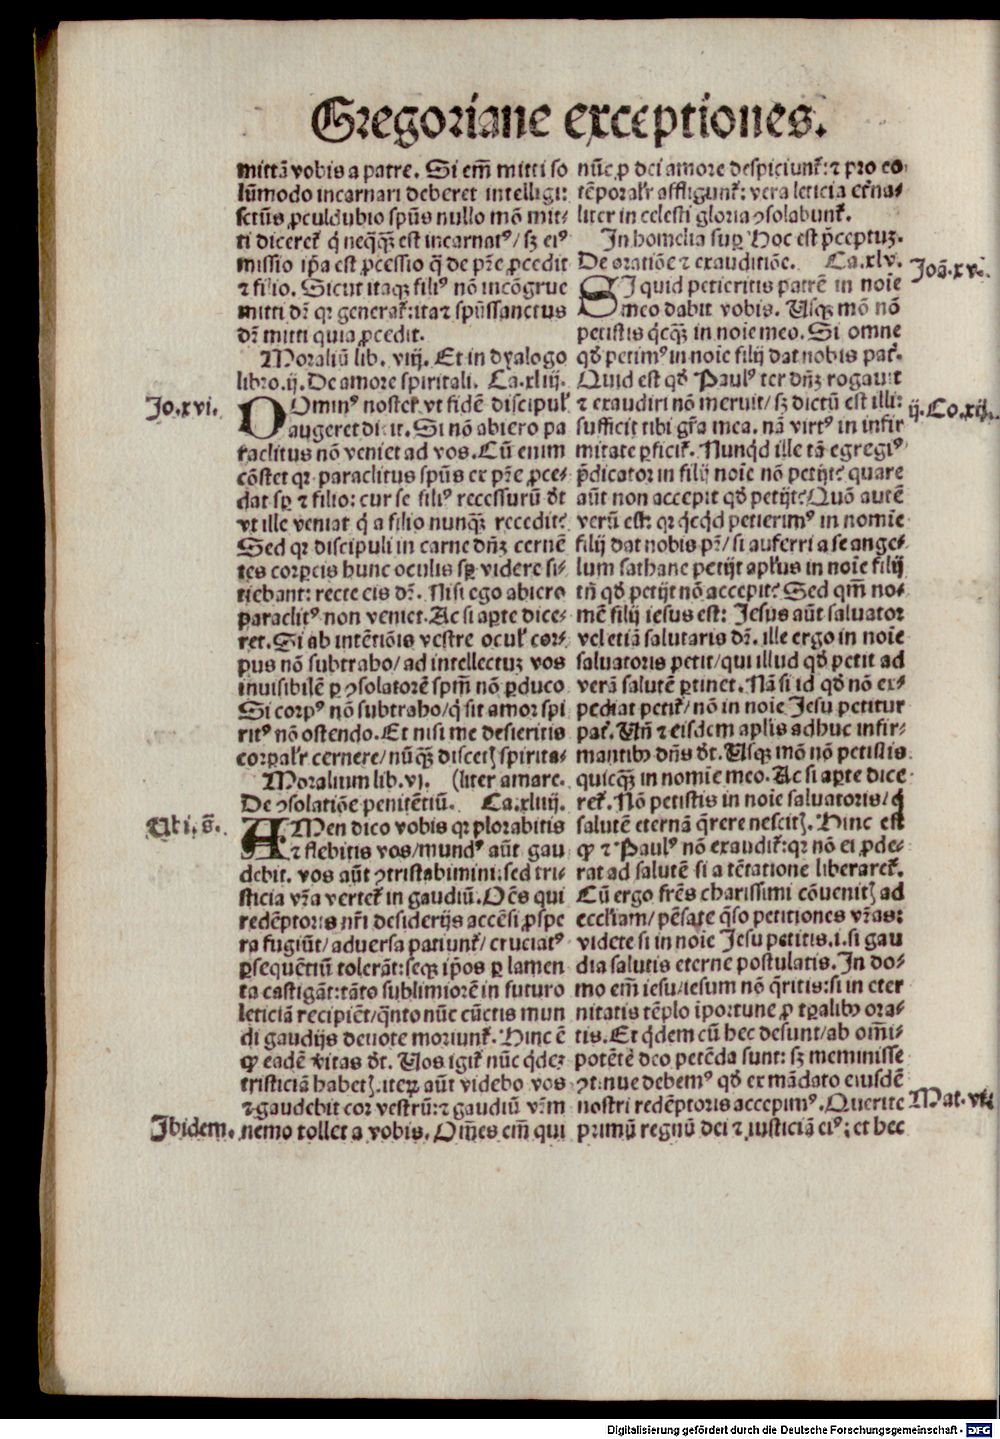 Gregoriane exceptiones.
mittā vobis a patre. Si em̄ mitti so
lūmodo incarnari deberet intelligi:
sctūs ꝓculdubio spūs nullo mō mit⸗
ti diceret̉ q̇ neq̄q̄ȝ est incarnatꝰ/ sȝ eiꝰ
missio ip̄a est ꝓcessio q̄ de p̄re ꝓcedit
⁊ filio. Sicut itaqȝ filiꝰ nō incōgrue
mitti dr̄ qꝛ generat̉: ita ⁊ spūssanctus
dr̄ mitti quia ꝓcedit.
Moraliū lib. viij. Et in dyalogo
libro.ij. De amore spiritali. Ca.xliij.
Jo.xvi.
DOminꝰ noster vt fidē discipul̉
augeret dixit. Si nō abiero pa
raclitus nō veniet ad vos. Cū enim
cōstet qꝛ paraclitus spūs ex p̄re ꝓce⸗
dat sꝑ ⁊ filio: cur se filiꝰ recessurū dt̄
vt ille veniat q̇ a filio nunq̄ȝ recedit?
Sed qꝛ discipuli in carne dn̄ȝ cernē
tes corꝑeis hunc oculis sꝑ videre si⸗
tiebant: recte eis dr̄. Nisi ego abiero
paraclitꝰ non veniet. Ac si aꝑte dice⸗
ret. Si ab intētiōis vestre ocul̉ cor⸗
pus nō subtraho/ ad intellectuȝ vos
inuisibilē ꝑ ꝯsolatorē spm̄ nō ꝑduco
Si corpꝰ nō subtraho/ q̇ sit amor spi
ritꝰ nō ostendo. Et nisi me desieritis
corꝑalr̉ cernere/ nūq̄ȝ discetȝ spirita⸗
Moralium lib. vj. (liter amare.
De ꝯsolatiōe penitētiū. Ca.xliiij.
Ubi. s̄.
AMen dico vobis qꝛ plorabitis
⁊ flebitis vos/ mundꝰ aūt gau
debit. vos aūt ꝯtristabimini: sed tri⸗
sticia vr̄a vertet̉ in gaudiū. Oēs qui
redēptoris nr̄i desiderijs accēsi ꝓspe
ra fugiūt/ aduersa patiunt̉/ cruciatꝰ
ꝑsequētiū tolerāt: seqȝ ip̄os ꝑ lamen
ta castigāt: tāto sublimiorē in futuro
leticiā recipiēt/ q̄nto nūc cūctis mun
di gaudijs deuote moriunt̉. Hinc ē
ꝙ eadē v̄itas dt̄. Uos igit̉ nūc q̇deȝ
tristiciā habetȝ. iteꝝ aūt videbo vos
⁊ gaudebit cor vestrū: ⁊ gaudiū vr̄m
Ibidem.
nemo tollet a vobis. Om̄es em̄ qui
nūc ꝓ dei amore despiciunt̉: ⁊ pro eo
tēporalr̉ affligunt̉: vera leticia et̉na⸗
liter in celesti gloria ꝯsolabunt̉.
In homelia suꝑ Hoc est p̄ceptuȝ.
De oratiōe ⁊ exauditiōe. Ca.xlv.
Joā.xv.
SI quid petieritis patrē in noīe
meo dabit vobis. Usqȝ mō nō
petistis q̇cq̄ȝ in noīe meo. Si omne
qd̄ petimꝰ in noīe filij dat nobis pat̉.
Quid est qd̄ Paulꝰ ter dn̄ȝ rogauit
⁊ exaudiri nō meruit/ sȝ dictū est illi:
ij. Co.xij.
sufficit tibi gr̄a mea. nā virtꝰ in infir
mitate ꝑficit̉. Nunq̇d ille tā egregiꝰ
p̄dicator in filij noīe nō petijt? quare
aūt non accepit qd̄ petijt? Quō autē
verū est: qꝛ q̇cq̇d petierimꝰ in nomīe
filij dat nobis pr̄/ si auferri a se ange⸗
lum sathane petijt apl̉us in noīe filij
tn̄ qd̄ petijt nō accepit? Sed qm̄ no⸗
mē filij iesus est: Jesus aūt saluator
vel etiā salutaris dr̄. ille ergo in noīe
saluatoris petit/ qui illud qd̄ petit ad
verā salutē ꝑtinet. Nā si id qd̄ nō ex⸗
pediat petit̉/ nō in noīe Jesu petitur
pat̉. Un̄ ⁊ eisdem aplis adhuc infir⸗
mantibꝰ dn̄s dt̄. Usqȝ mō nō petistis
quicq̄ȝ in nomīe meo. Ac si aꝑte dice
ret̉. Nō petistis in noīe saluatoris/ q̇
salutē eternā q̄rere nescitȝ. Hinc est
ꝙ ⁊ Paulꝰ nō exaudit̉: qꝛ nō ei ꝓde⸗
rat ad salutē si a tētatione liberaret̉.
Cū ergo fr̄es charissimi cōuenitȝ ad
eccl̉iam/ pēsate q̄so petitiones vr̄as:
videte si in noīe Jesu petitis. i. si gau
dia salutis eterne postulatis. In do⸗
mo em̄ iesu/ iesum nō q̄ritis: si in eter
nitatis tēplo īportune ꝓ tꝑalibꝰ ora⸗
tis. Et q̇dem cū hec desunt/ ab om̄i⸗
potēte deo petēda sunt: sȝ meminisse
ꝯtinue debemꝰ qd̄ ex mādato eiusdē
nostri redēptoris accepimꝰ. Querite
Mat.vi.
primū regnū dei ⁊ iusticiā eiꝰ: et hec
Digitalisierung gefördert durch die Deutsche Forschungsgemeinschaft - DFG